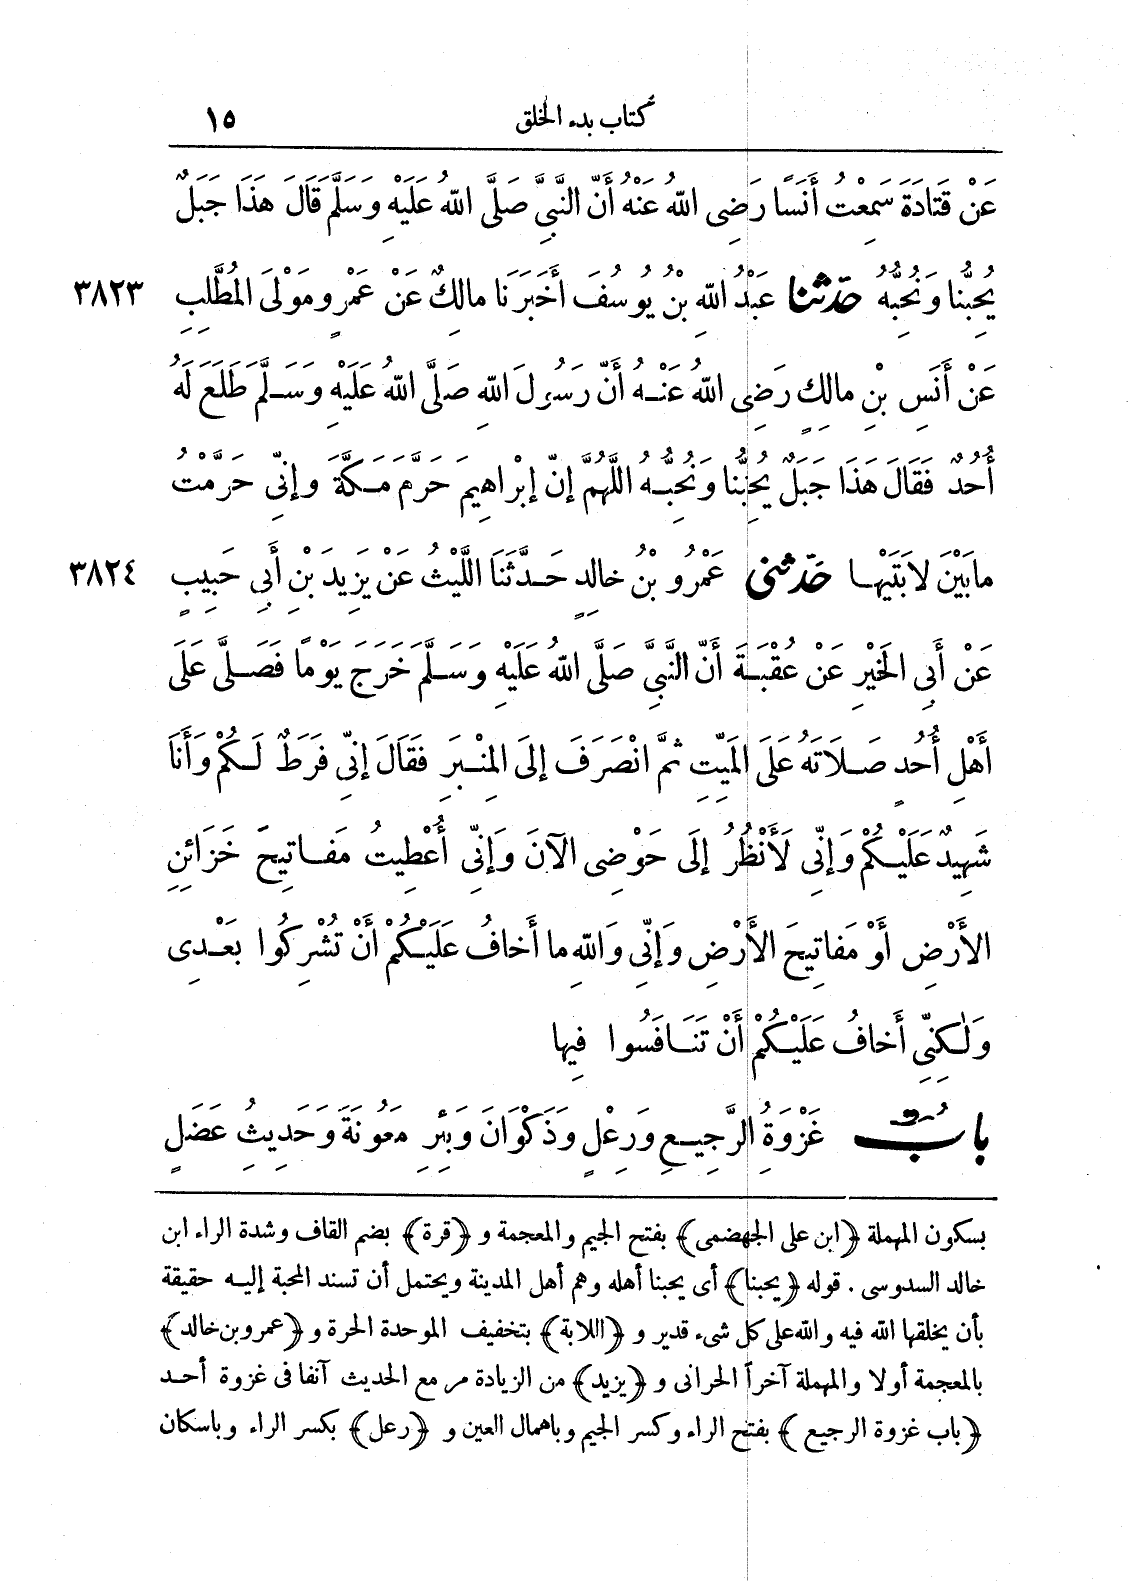 كتاب بدء الخلق ١٥
عَنْ قَتَادَةَ سَمِعْتُ أَنَسًا رَضِىَ اللّٰهُ عَنْهُ أَنَّ النَّبِىَّ صَلَّى اللّٰهُ عَلَيْهِ وَسَلَّمَ قَالَ هَذَا جَبَلٌ
يُحِبُّنَا وَنُحِبُّهُ حدّثنا عَبْدُ اللّٰهِ بْنُ يُوسُفَ أَخْبَرَنَا مالِكٌ عَنْ عَمْرٍو مَوْلَى المُطَّلِبِ ٣٨٢٣
عَنْ أَنَسِ بْنِ مالِكٍ رَضِىَ اللّٰهُ عَنْهُ أَنَّ رَسُولَ اللّٰهِ صَلَّى اللّٰهُ عَلَيْهِ وَسَلَّمَ طَلَعَ لَهُ
أُحُدٌ فَقَالَ هَذَا جَبَلٌ يُحِبُّنا وَنُحِبُّهُ اللَّهُمَّ إِنَّ إِبْراهِيمَ حَرَّمَ مَكَّةَ وإِنِّى حَرَّمْتُ
مابَيْنَ لابَتَيْهِا حدّثنى عَمْرُو بْنُ خالِدٍ حَدَّثَنَا اللَّيْثُ عَنْ يَزِيدَ بْنِ أَبِى حَبِيبٍ ٣٨٢٤
عَنْ أَبِى الخَيْرِ عَنْ عُقْبَةَ أَنَّ النَّبِىَّ صَلَّى اللّٰهُ عَلَيْهِ وَسَلَّمَ خَرَجَ يَوْمًا فَصَلَّى عَلَى
أَهْلِ أُحُدٍ صَلَاتَهُ عَلَى المَيِّتِ ثُمَّ انْصَرَفَ إِلَى المِنْبَرِ فَقَالَ إِنِّى فَرَطٌ لَكُمْ وَأَنَا
شَهِيدٌ عَلَيْكُمْ وَإِنِّى لَأَنْظُرُ إِلَى حَوْضِى الآنَ وَإِنِّى أُعْطِيتُ مَفَاتِيحَ خَزَائِنِ
الأَرْضِ أَوْ مَفاتِيحَ الأَرْضِ وَإِنِّى وَاللّٰهِ ما أَخافُ عَلَيْكُمْ أَنْ تُشْرِكُوا بَعْدِى
وَلٰكِنِّى أَخافُ عَلَيْكُمْ أَنْ تَنَافَسُوا فِيها
بابُ غَزْوَةِ الرَّجِيعِ وَرِعْلٍ وَذَكْوَانَ وَبِئْرِ مَعُونَةَ وَحَدِيثُ عَضَلٍ
بسكون المهملة ﴿ابن على الجهضمى﴾ بفتح الجيم والمعجمة و ﴿قرة﴾ بضم القاف وشدة الراء ابن
خالد السدوسى . قوله ﴿يحبنا﴾ أى يحبنا أهله وهم أهل المدينة ويحتمل أن تسند المحبة إليه حقيقة
بأن يخلقها اللّٰه فيه واللّٰه على كل شىء قدير و ﴿اللابة﴾ بتخفيف الموحدة الحرة و ﴿عمرو بن خالد﴾
بالمعجمة أولا والمهملة آخراً الحرانى و ﴿يزيد﴾ من الزيادة مر مع الحديث آنفا فى غزوة أحد
﴿باب غزوة الرجيع﴾ بفتح الراء وكسر الجيم وباهمال العين و ﴿رعل﴾ بكسر الراء وباسكان